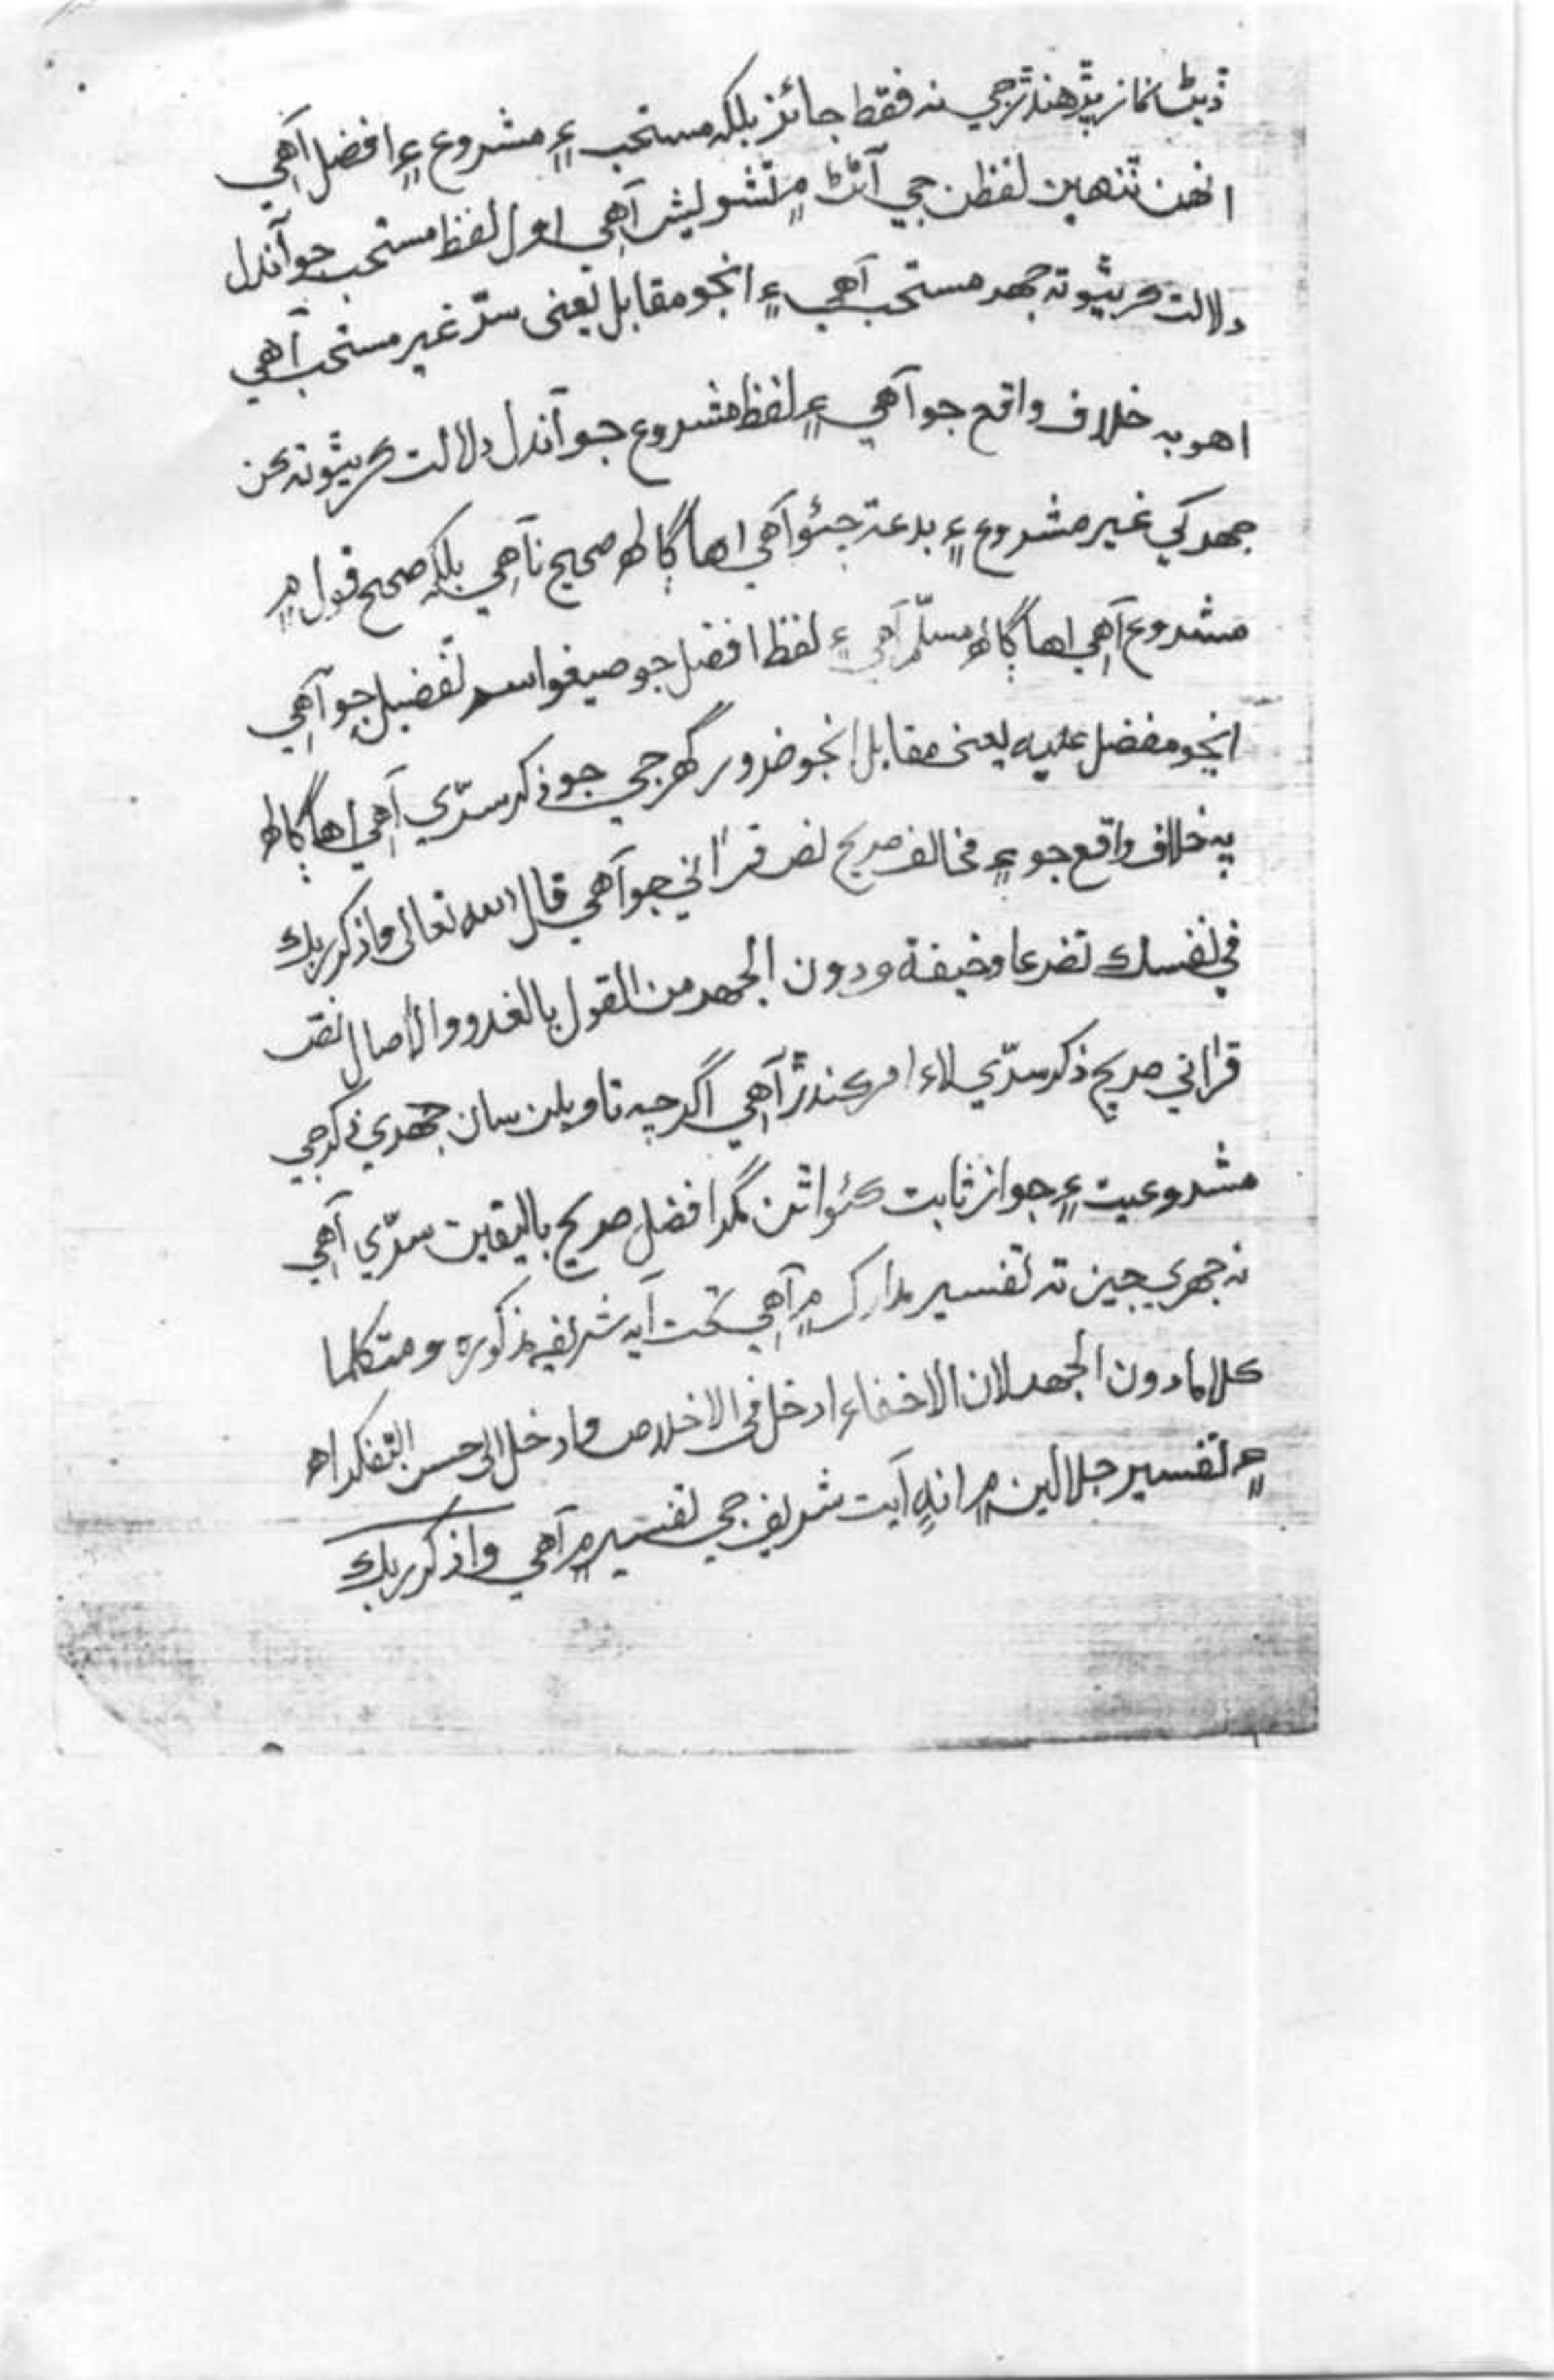 ڏيڻ نماز پڙهندڙ جي نه فقط جائز بلڪه مستحب ۽ مشروع ۽ افضل آهي
انهن تنهين لفظن جي آڻڻ ۾ تشويش آهي اول لفظ مستحب جو آندل
دلالت ڪريٿو ته جهر مستحب آهي ۽ انجو مقابل يعني سرّ غير مستحب آهي
اهو به خلاف واقع جو آهي ۽ لفظ مشروع جو آندل دلالت ڪريٿو ته ڪن
جهر کي غير مشروع ۽ بدعة چئو آهي اها ڳالھ صحيح ناهي بلڪه صحيح قول ۾
مشروع آهي اها ڳالھ مسلّم آهي ۽ لفظ افضل جو صيغو اسم تفضيل جو آهي
انجو مفضل عليه يعني مقابل انجو ضرور گهرجي جو ذڪر سرّي آهي اها ڳالھ
به خلاف واقع جو ۽ مخالف صريح نص قرآني جو آهي قال الله تعالى واذكر ربك
في نفسك تضرعا وخيفة ودون الجهر من القول بالغدو والأصال نص
قرآني صريح ذڪر سرّي لاءِ امر ڪندڙ آهي اگرچه تاويلن سان جهري ذڪر جي
مشروعيت ۽ جواز ثابت ڪئو اٿن مگر افضل صريح باليقين سرّي آهي
نه جهري جيئن ته تفسير مدارك ۾ آهي تحت آيه شريفه مذكوره ومتكلما
كلاما دون الجهر لان الاخفاء ادخل في الاخلاص وادخل الى حسن التفكر اھ
۽ تفسير جلالين ۾ انهي آيت شريف جي تفسير ۾ آهي واذكر ربك